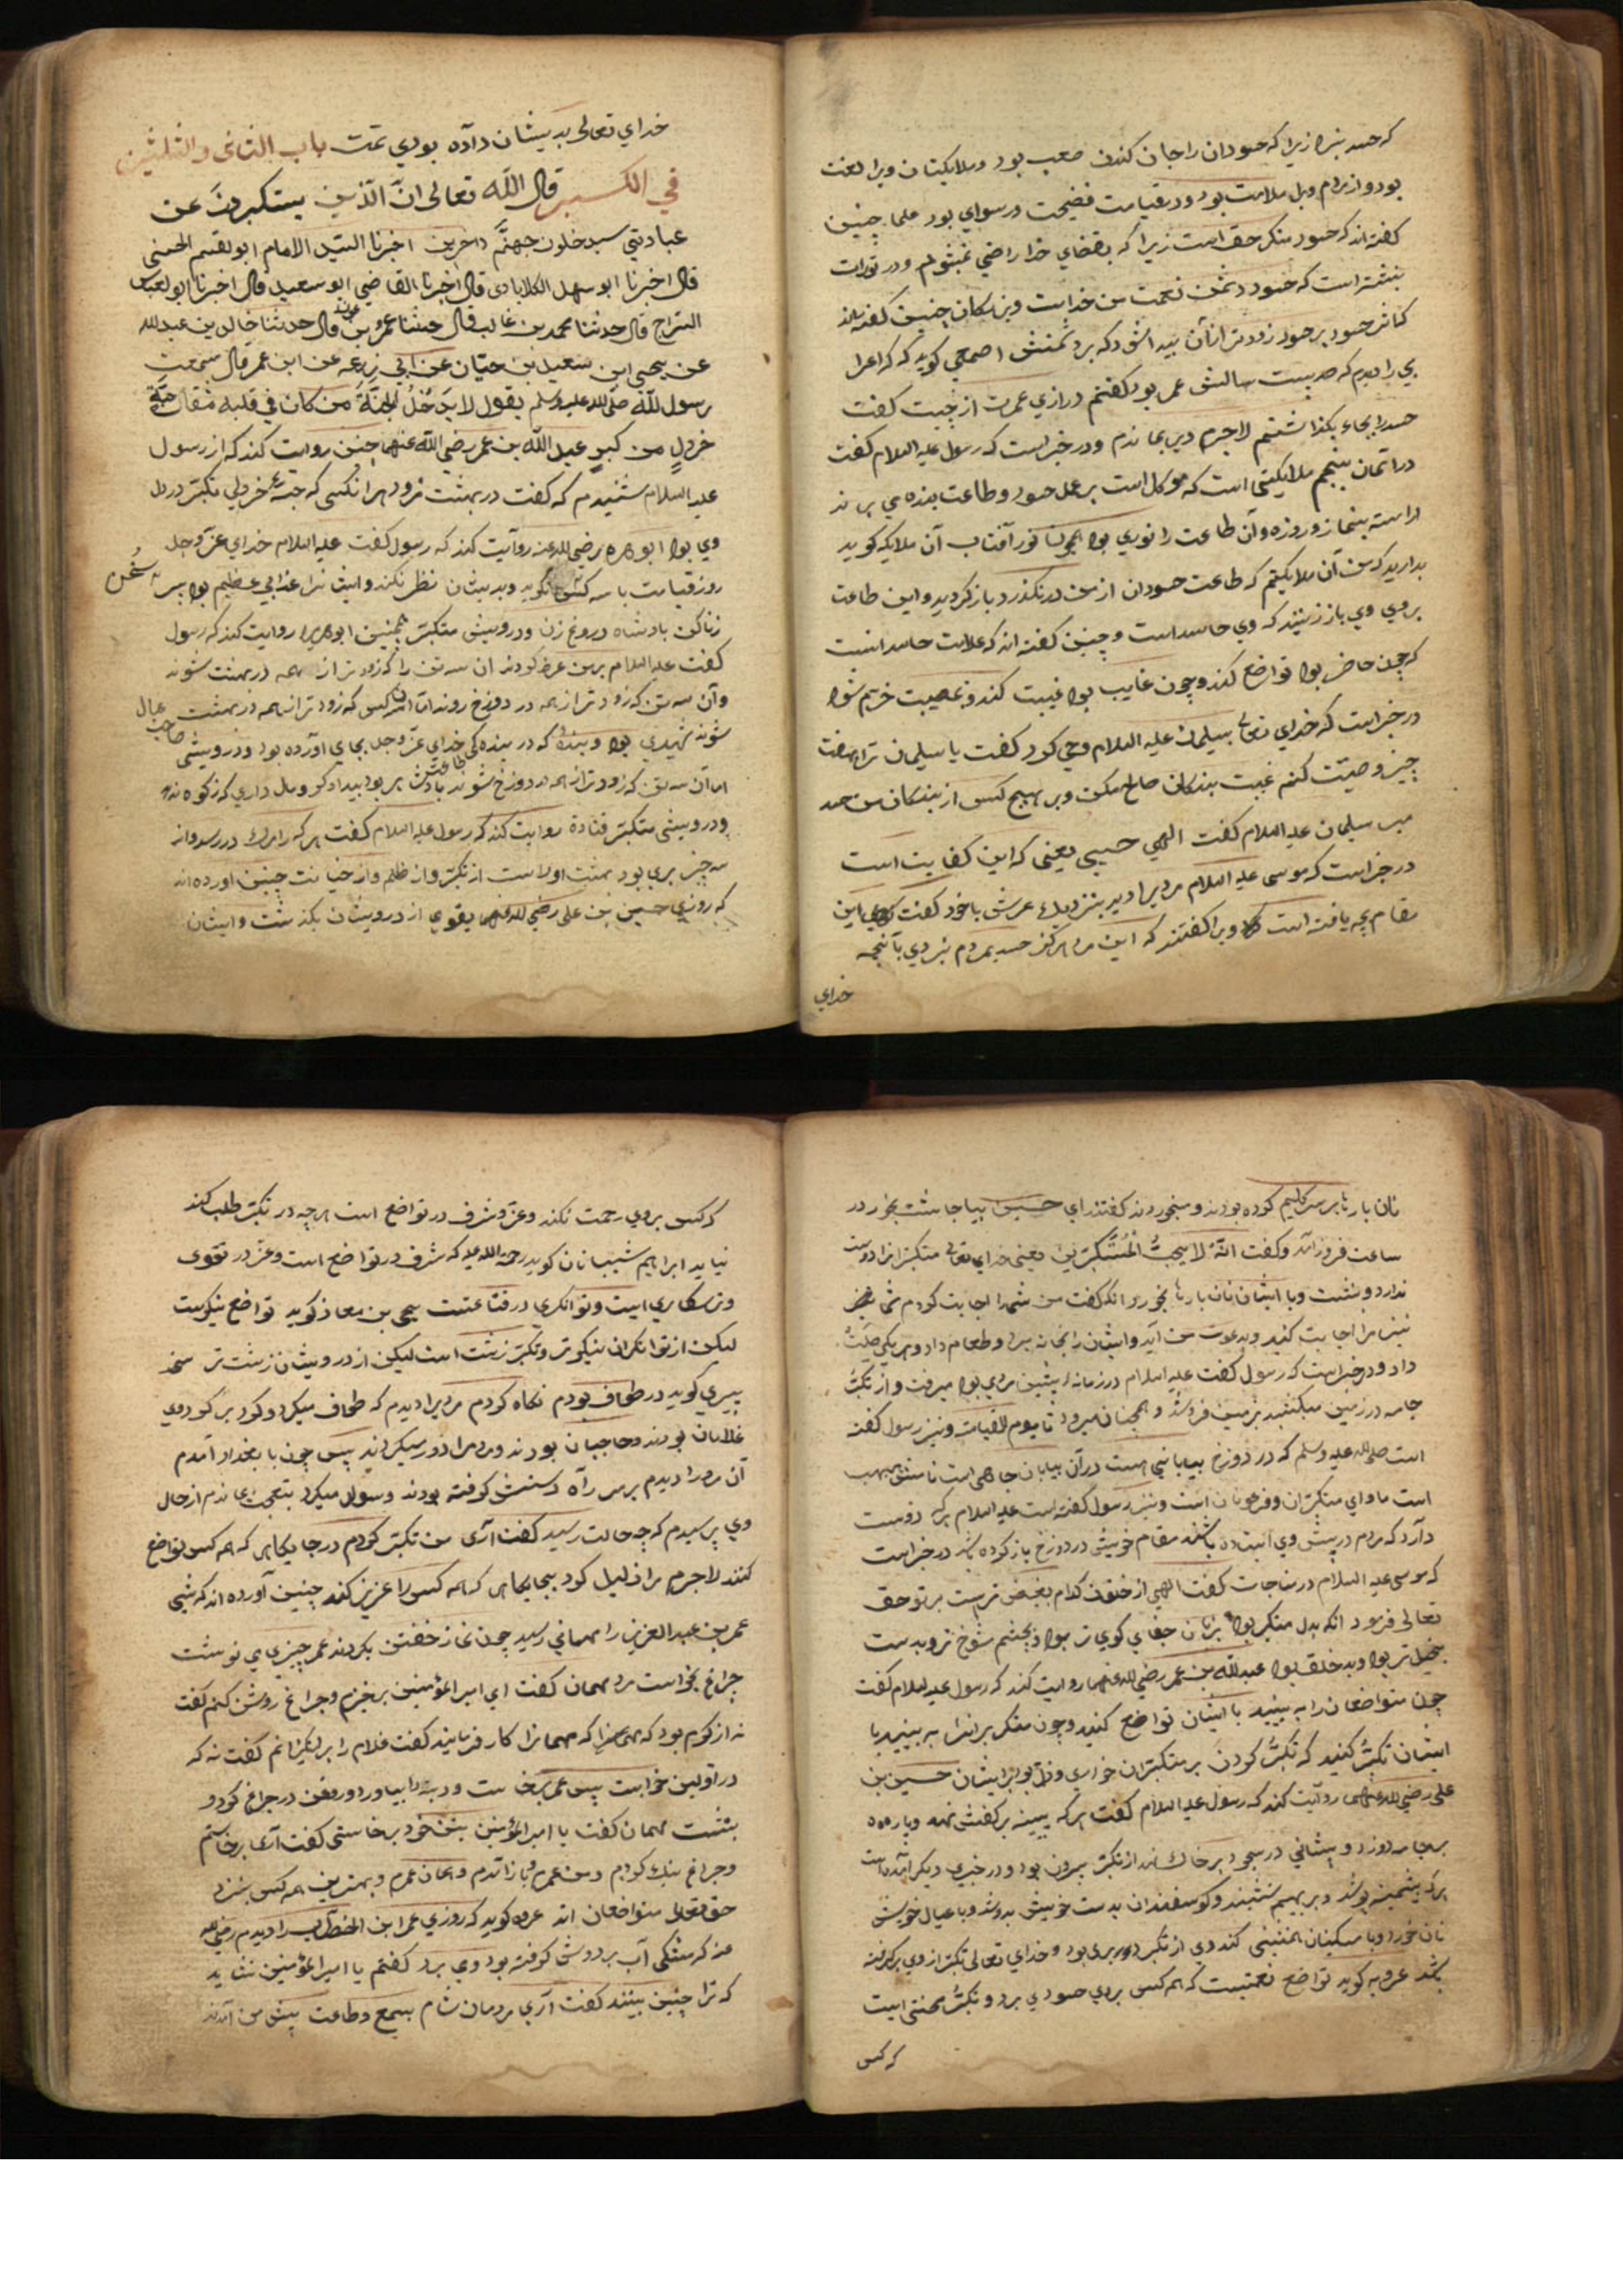 که حسد نبرد زیرا که حسودان را جان کندن صعب بود و ملایکتان ویرا لعنت
بود و از مردم ویل ملامت بود و در قیامت فضیحت و رسوای بود علما چنین
کفته اند که حسود منکر حق است زیرا که بقضای خدا راضی نمیشود و در تورات
نبشته است که حسود دشمن نعمت من خداست و بزرکان چنین کفته اند
کاثر حسود بر حسود زودتر از آن پیدا شود که بر دشمنش اصمعی کوید که اعرا
بی را دیدم که صد بیست سالش عمر بود کفتم درازی عمرت از چیست کفت
حسد را بجاء بکذاشتم لاجرم دیر بماندم و در خبر است که رسول علیه السلام کفت
در اسمان پنجم ملایکتی است که موکل است بر عمل حسود و طاعت بنده می برند
اراسته بنماز و روزه و آن طاعت را نوری بود همچون نور آفتاب آن ملایکه کوید
بدارید که من آن ملایکتم که طاعت حسودان از من در نکذرد باز کردید و این طاعت
بر روی وی باز زنید که وی حاسد است و چنین کفته اند که علامت حاسد انست
که چون حاضر بود تواضع کند و چون غایب بود غیبت کند و بمصیبت خرم شود
در خبر است که خدای تعالی بسیلمان علیه السلام وحی کرد کفت یا سیلمان ترا بهفت
چیز وصیّت کنم غیبت بندکان صالح مکن و بر هیچ کس از بندکان من حسد
مبر سیلمان علیه السلام کفت الهی حسبی یعنی که این کفایت است
در خبر است که موسی علیه السلام مردی را دید بنزدیک عرش با خود کفت این
مقام بچه یافته است ویرا کفتند که این مرد هرکز حسد بمردم نبردی بآنچه
خدای
خدای تعالی بدیشان داده بودی تمت باب الثانی والثلثین
في الكبر قال الله تعالى انّ الّذين يستكبرون عن
عبادتي سيدخلون جهنّم داخرين اخبرنا السّيد الامام ابو القسم الحسنى
قال اخبرنا ابو سهل الكلابادى قال اخبرنا القاضي ابو سعيد قال اخبرنا ابو العباس
السّراج قال حدثنا محمد بن غالب قال حدثنا عمرو بن عون قال حدثنا خالد بن عبد الله
عن يحيى ابن سعيد بن حيّان عن ابي زرعه عن ابن عمر قال سمعت
رسول الله صلّى الله عليه وسلّم يقول لا يدخل الجنّة من كان في قلبه مثقال حبّة
خردل من كبر عبد الله بن عمر رضي الله عنهما چنين روایت کند که از رسول
علیه السلام شنیدم که کفت در بهشت نرود هر انکسی که حبّهٔ خردلی تکبّر در دل
وی بود ابو هریره رضی الله عنه روایت کند که رسول کفت علیه السلام خدای عزّ و جل
روز قیامت با سه کس سخن نکوید و بدیشان نظر نکند و ایشانرا عذابی عظیم بود پیر
زنا کن پادشاه دروغ زن و درویش متکبّر همچنین ابو هریره روایت کند که رسول
کفت علیه السلام بر من عرض کردند ان سه تن را که زودتر از همه در بهشت شوند
و آن سه تن که زودتر از همه در دوزخ روند امّا انکس که زودتر از همه در بهشت
شوند شهیدی بود و بندهٔ که در بندهکی خدای عزّ و جل بجای اورده بود و درویشی صاحب عیال
اما آن سه تن که زودتر از همه در دوزخ شوند پادشاهی بود بیدادکر و مال داری که زکوه ندهد
و درویشی متکبّر قتادة روایت کند که رسول علیه السلام کفت هر که را مرک در رسد و از
سه چیز بری بود بهشت اولا ست از تکبّر و از ظلم و از خیانت چنین اورده اند
که روزی حسین بن علی رضی الله عنهما بقومی از درویشان بکذشت و ایشان
نان پارها بر سر کلیم کرده بودند و میخوردند کفتند ای حسین بیا چاشت بخور در
ساعت فروز آمد و کفت انّه لا يحبّ المستكبرين یعنی خدای تعالی متکبّرانرا دوست
ندارد و بنشست و با ایشان نان پارها بخورد انکه کفت من شمارا اجابت کردم شما
نیز مرا اجابت کنید و بدعوت من آیید و ایشان را بخانه برد و طعام داد و هر یکی صلتی
داد و در خبر است که رسول کفت علیه السلام در زمانه پیشین مردی بود میرفت و از تکبّر
جامه در زمین میکشید بزمین فرو شد و همچنان میرود تا یوم القیامت و نیز رسول کفته
است صلی الله علیه وسلم که در دوزخ بیابانی است در آن بیابان چاهی است نامش هبهب
است ماوای متکبّران و فرعونان است و نیز رسول کفته است علیه السلام هر که دوست
دارد که مردم در پیش وی ایستاده باشند مقام خویش در دوزخ باز کرده بود در خبر است
که موسی علیه السلام در مناجات کفت الهی از خلقت کدام بغیض تر است بر تو حق
تعالی فرمود انکه بدل متکبر بود و بزبان جفای کوی تر بود و بچشم شوخ تر و بدست
بخیل تر بود و بد خلق بود عبد الله بن عمر رضی الله عنهما روایت کند که رسول علیه السلام کفت
چون متواضعان را به بینید با ایشان تواضع کنید و چون متکبرانرا به بینید با
ایشان تکبّر کنید که تکبّر کردن بر متکبّران خواری و ذل بود بر ایشان حسین بن
علی رضی الله عنهما روایت کند که رسول علیه السلام کفت هر که پینه بر کفش نهد و پاره
بر جامه دوزد و پیشانی در سجود بر خاک نهد از تکبّر بیرون بود و در خبری دیکر آمده است
هر که پشمینه پوشد و بر بهیم نشیند و کوسفندان بدست خویش بدوشد و با عیال خویش
نان خورد و با مسکینان همنشینی کند وی از تکبر بری بود و خدای تعالی تکبّر از وی برکرفته
باشد عروبه کوید تواضع نعمتیست که هر کس بروی حسودی برد و تکبّر محنتی است
که کس
که کس بروی رحمت نکند و عزّ و شرف در تواضع است هر چه در تکبّر طلب کند
نیابد ابراهیم شیبانان کوید رحمة الله علیه که شرف در تواضع است و عزّ در تقوی
و ترسکاری است و توانکری در قناعتست یحیی بن معاذ کوید تواضع نیکوست
لیکن از توانکران نیکوتر و تکبّر زشت است لیکن از درویشان زشت تر سخد
پیری کوید در طواف بودم نکاه کردم مردی را دیدم که طواف میکرد و کرد بر کرد وی
غلامان بودند و حاجبان بودند و مردم را دور میکردند پس چون با بغداد آمدم
آن مرد را دیدم بر سر راه دستش کرفته بودند و سوال میکرد بتعجب بماندم از حال
وی پرسیدم که چه حالت رسید کفت آری من تکبّر کردم در جایکاهی که همه کس تواضع
کنند لاجرم مرا ذلیل کرد بجایکاهی که همه کس را عزیز کند چنین آورده اند که شبی
عمر بن عبد العزیز را مهمانی رسید چون نماز خفتن بکردند عمر چیزی می نوشت
چراغ بخواست مرد مهمان کفت ای امیر المؤمنین برخیزم و چراغ روشن کنم کفت
نه از کرم بود که مهمانرا کار فرمایند کفت غلام را بر انکیزانم کفت نه که
در اولین خوابست پس عمر برخاست و دبّه را بیاورد و روغن در چراغ کرد و
بنشست مهمان کفت یا امیر المؤمنین بتن خود برخاستی کفت آری برخاستم
و چراغ نیک کردم و من عمرم و باز آمدم و همان عمرم و بهترین همه کس نزد
حق تعالی متواضعان اند عروه کوید که روزی عمر ابن الخطّاب را دیدم رضی الله
عنه که مشکی آب بر دوش کرفته بود و می برد کفتم یا امیر المؤمنین نشاید
که ترا چنین بینند کفت آری مردمان شام بسمع و طاعت پیش من آمدند